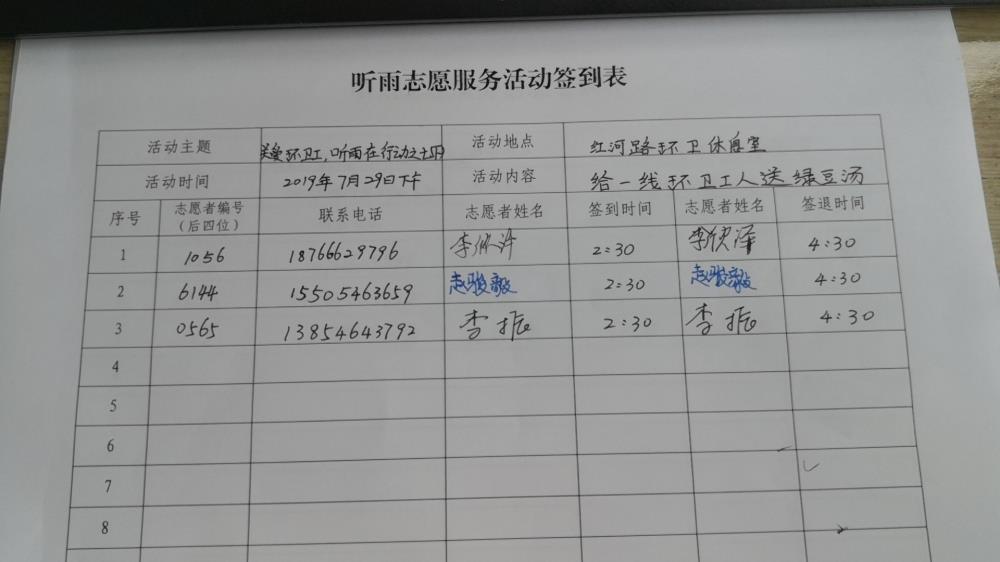 听雨志愿服务活动签到表
活动主题 关爱环卫工,听雨在行动之 活动地点 红河路环卫休息室
活动时间 2019年7月29日下午 活动内容 给一线环卫工人送绿豆汤
序号 志愿者编号 联系电话 志愿者姓名 签到时间 志愿者姓名 签退时间
(后四位)
1 1056 18766629796 2:30 4:30
2 6144 15505463659 赵骏毅 2:30 赵骏毅 4:30
3 0565 13854643792 李振 2:30 李振 4:30
4
5
6
7
8